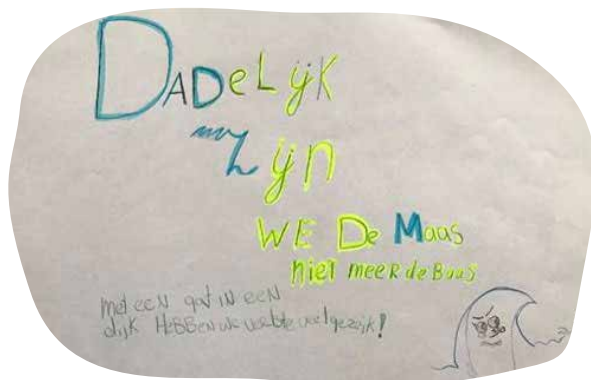 DADeLijK
Zijn
WE De Maas
niet meer de Baas
met eeN gat iN eeN
dijk HeBBeN we veelste veel gezeik!